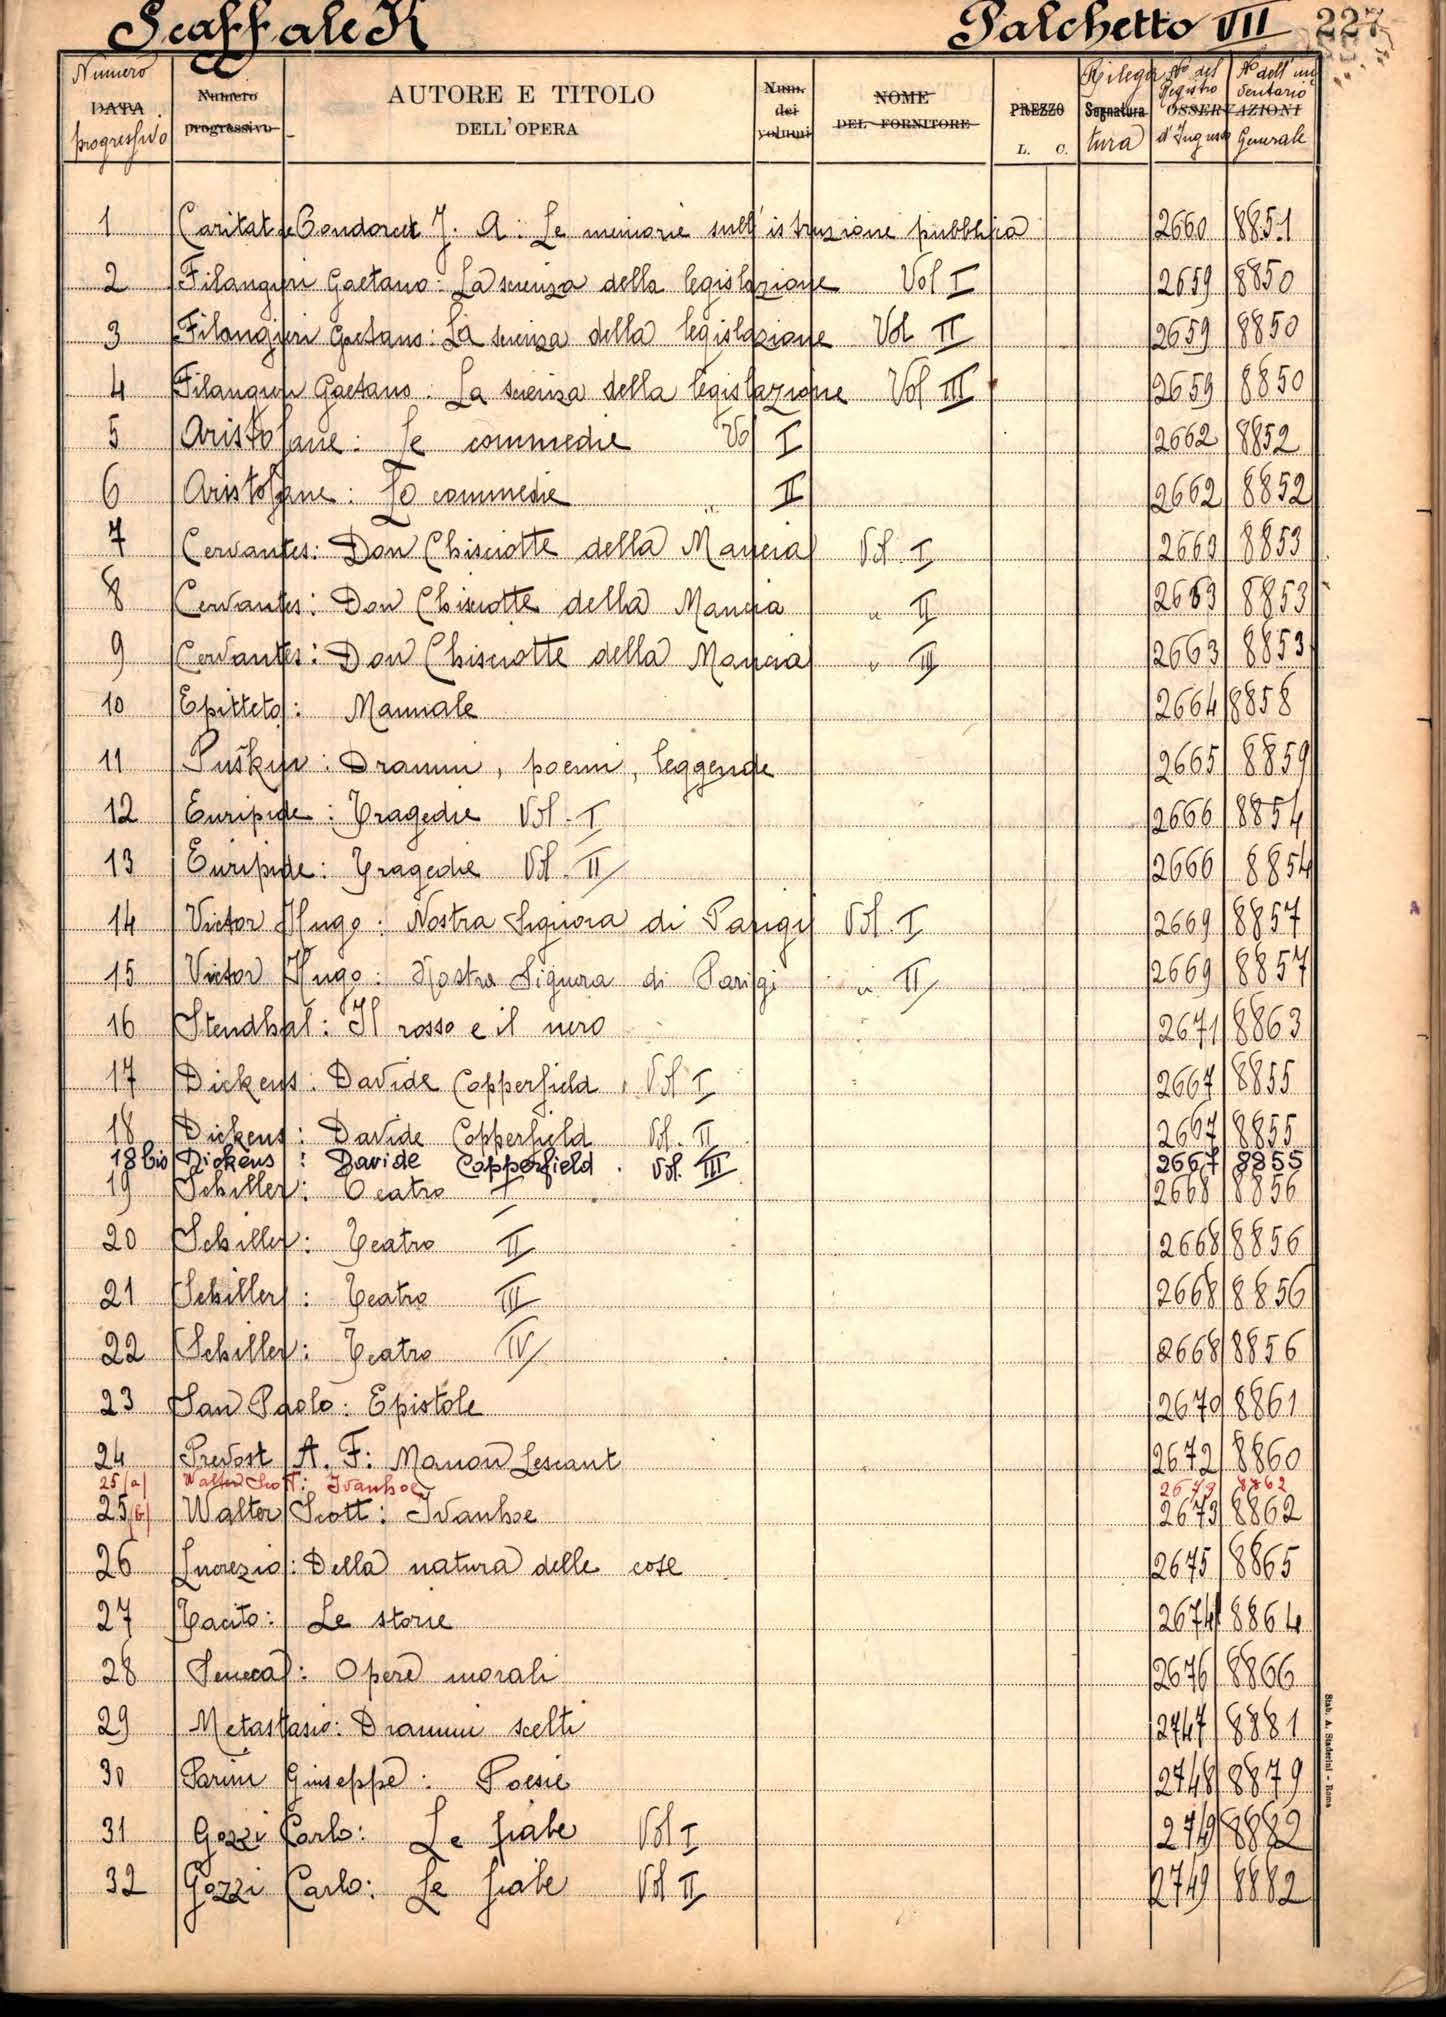 Scaffale K Palchetto VII 227
Numero DATA progressivo Numero progressivo AUTORE E TITOLO DELL'OPERA Num. dei volumi NOME DEL FORNITORE PREZZO L. C. Rilegatura Segnatura N° del Registro d'Ingresso OSSERVAZIONI N° dell'inventario Generale
1 Caritat de Condorcet J. A: Le memorie sull'istruzione pubblica 2660 8851
2 Filangieri Gaetano: La scienza della legislazione Vol I 2659 8850
3 Filangieri Gaetano: La scienza della legislazione Vol II 2659 8850
4 Filangieri Gaetano: La scienza della legislazione Vol III 2659 8850
5 Aristofane: Le commedie Vol I 2662 8852
6 Aristofane: Le commedie " II 2662 8852
7 Cervantes: Don Chisciotte della Mancia Vol. I 2663 8853
8 Cervantes: Don Chisciotte della Mancia " II 2663 8853
9 Cervantes: Don Chisciotte della Mancia " III 2663 8853
10 Epitteto: Manuale 2664 8858
11 Puškin: Drammi, poemi, leggende 2665 8859
12 Euripide: Tragedie Vol. I 2666 8854
13 Euripide: Tragedie Vol. II 2666 8854
14 Victor Hugo: Nostra Signora di Parigi Vol. I 2669 8857
15 Victor Hugo: Nostra Signora di Parigi " II 2669 8857
16 Stendhal: Il rosso e il nero 2671 8863
17 Dickens: Davide Copperfield. Vol I 2667 8855
18 Dickens: Davide Copperfield Vol. II 2667 8855
18 bis Dickens: Davide Copperfield. Vol. III 2667 8855
19 Schiller: Teatro I 2668 8856
20 Schiller: Teatro II 2668 8856
21 Schiller: Teatro III 2668 8856
22 Schiller: Teatro IV 2668 8856
23 San Paolo: Epistole 2670 8861
24 Prevost A. F: Manon Lescaut 2672 8860
25 (a) Walter Scott: Ivanhoe 2673 8862
25 (b) Walter Scott: Ivanhoe 2673 8862
26 Lucrezio: Della natura delle cose 2675 8865
27 Tacito: Le storie 2674 8864
28 Seneca: Opere morali 2676 8866
29 Metastasio: Drammi scelti 2747 8881
30 Parini Giuseppe: Poesie 2748 8879
31 Gozzi Carlo: Le fiabe Vol I 2749 8882
32 Gozzi Carlo: Le fiabe Vol II 2749 8882
Stab. A. Staderini - Roma